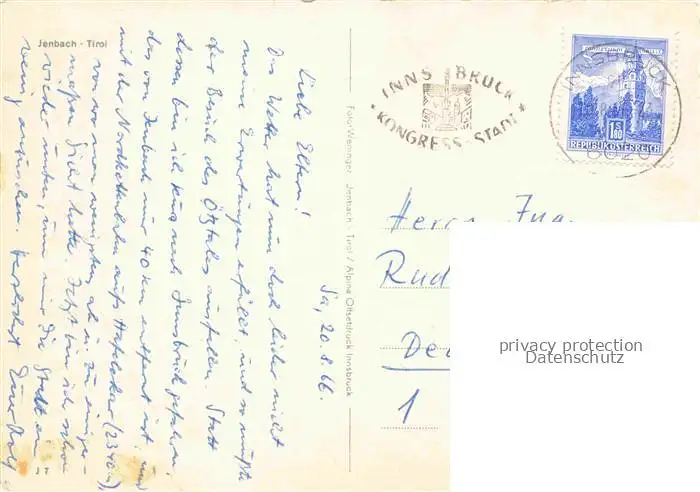 Jenbach - Tirol
Sa, 20.8.66.
Liebe Eltern!
Das Wetter hat nun doch leider nicht
meine Erwartungen erfüllt, und so mußte
der Besuch des Ötztales ausfallen. Statt
dessen bin ich kurz nach Innsbruck gefahren,
das von Jenbach nur 40 km entfernt ist, und
mit der Nordkettenbahn aufs Hafelekar (2340m),
von wo man wenigstens ab u. zu einiger-
maßen Sicht hatte. Jetzt bin ich schon
wieder unten, um mir die Stadt ein
wenig anzusehen. Herzlichst Euer
J 7
Foto Weninger Jenbach - Tirol / Alpina Offsetdruck Innsbruck
INNSBRUCK
KONGRESS-STADT
INNSBRUCK
6020
S 1.80
REPUBLIK ÖSTERREICH
Herrn Ing.
Rud
De
1
privacy protection
Datenschutz